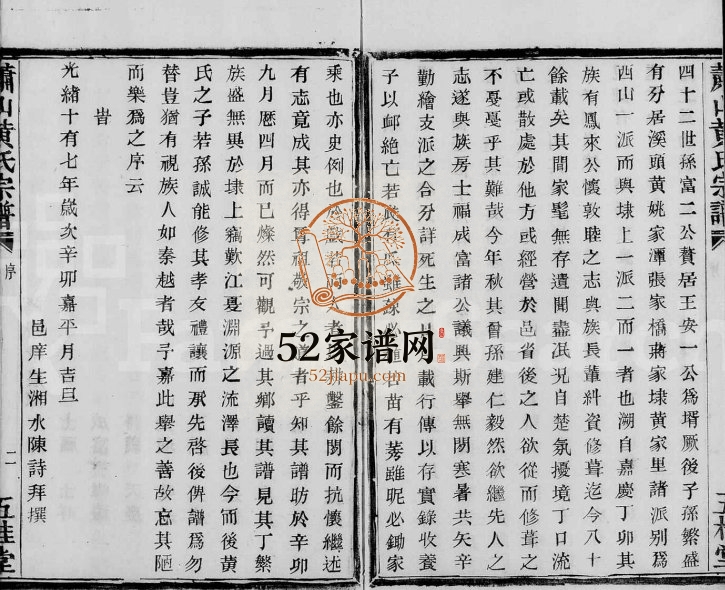 蕭山黃氏宗譜
四十二世孫富二公贅居王安一公爲壻厥後子孫繁盛
有分居溪頭黃姚家潭張家橋蔣家埭黃家里諸派別爲
西山一派而與埭上一派二而一者也溯自嘉慶丁卯其
族有鳳來公懷敦睦之志與族長董糾資修葺迄今八十
餘載矣其間家髦無存遺聞盡泯况自楚氛擾境丁口流
亡或散處於他方或經營於邑省後之人欲從而修葺之
不戞戞乎其難哉今年秋其曾孫建仁毅然欲繼先人之
志遂與族房士福成富諸公議興斯舉無間寒暑共矢辛
勤繪支派之合分詳死生之 載行傳以存實錄收養
子以邮絶亡若 雖疎必 苗有莠雖昵必鋤家
五桂堂
乘也亦史例也 者 鑿餘閒而抗懷繼述
有志竟成其亦得尊祖敬宗之 者乎知其譜昉於辛卯
九月歷四月而已燦然可觀予過其鄉讀其譜見其丁繁
族盛無異於埭上竊歎江夏淵源之流澤長也今而後黃
氏之子若孫誠能修其孝友禮讓而承先啓後俾譜爲勿
替豈猶有視族人如秦越者哉予嘉此舉之善故忘其陋
而樂爲之序云
旹
光緒十有七年歲次辛卯嘉平月吉旦
邑庠生湘水陳詩拜撰
蕭山黃氏宗譜
序
二
五桂堂
52家谱网
52jiapu.com